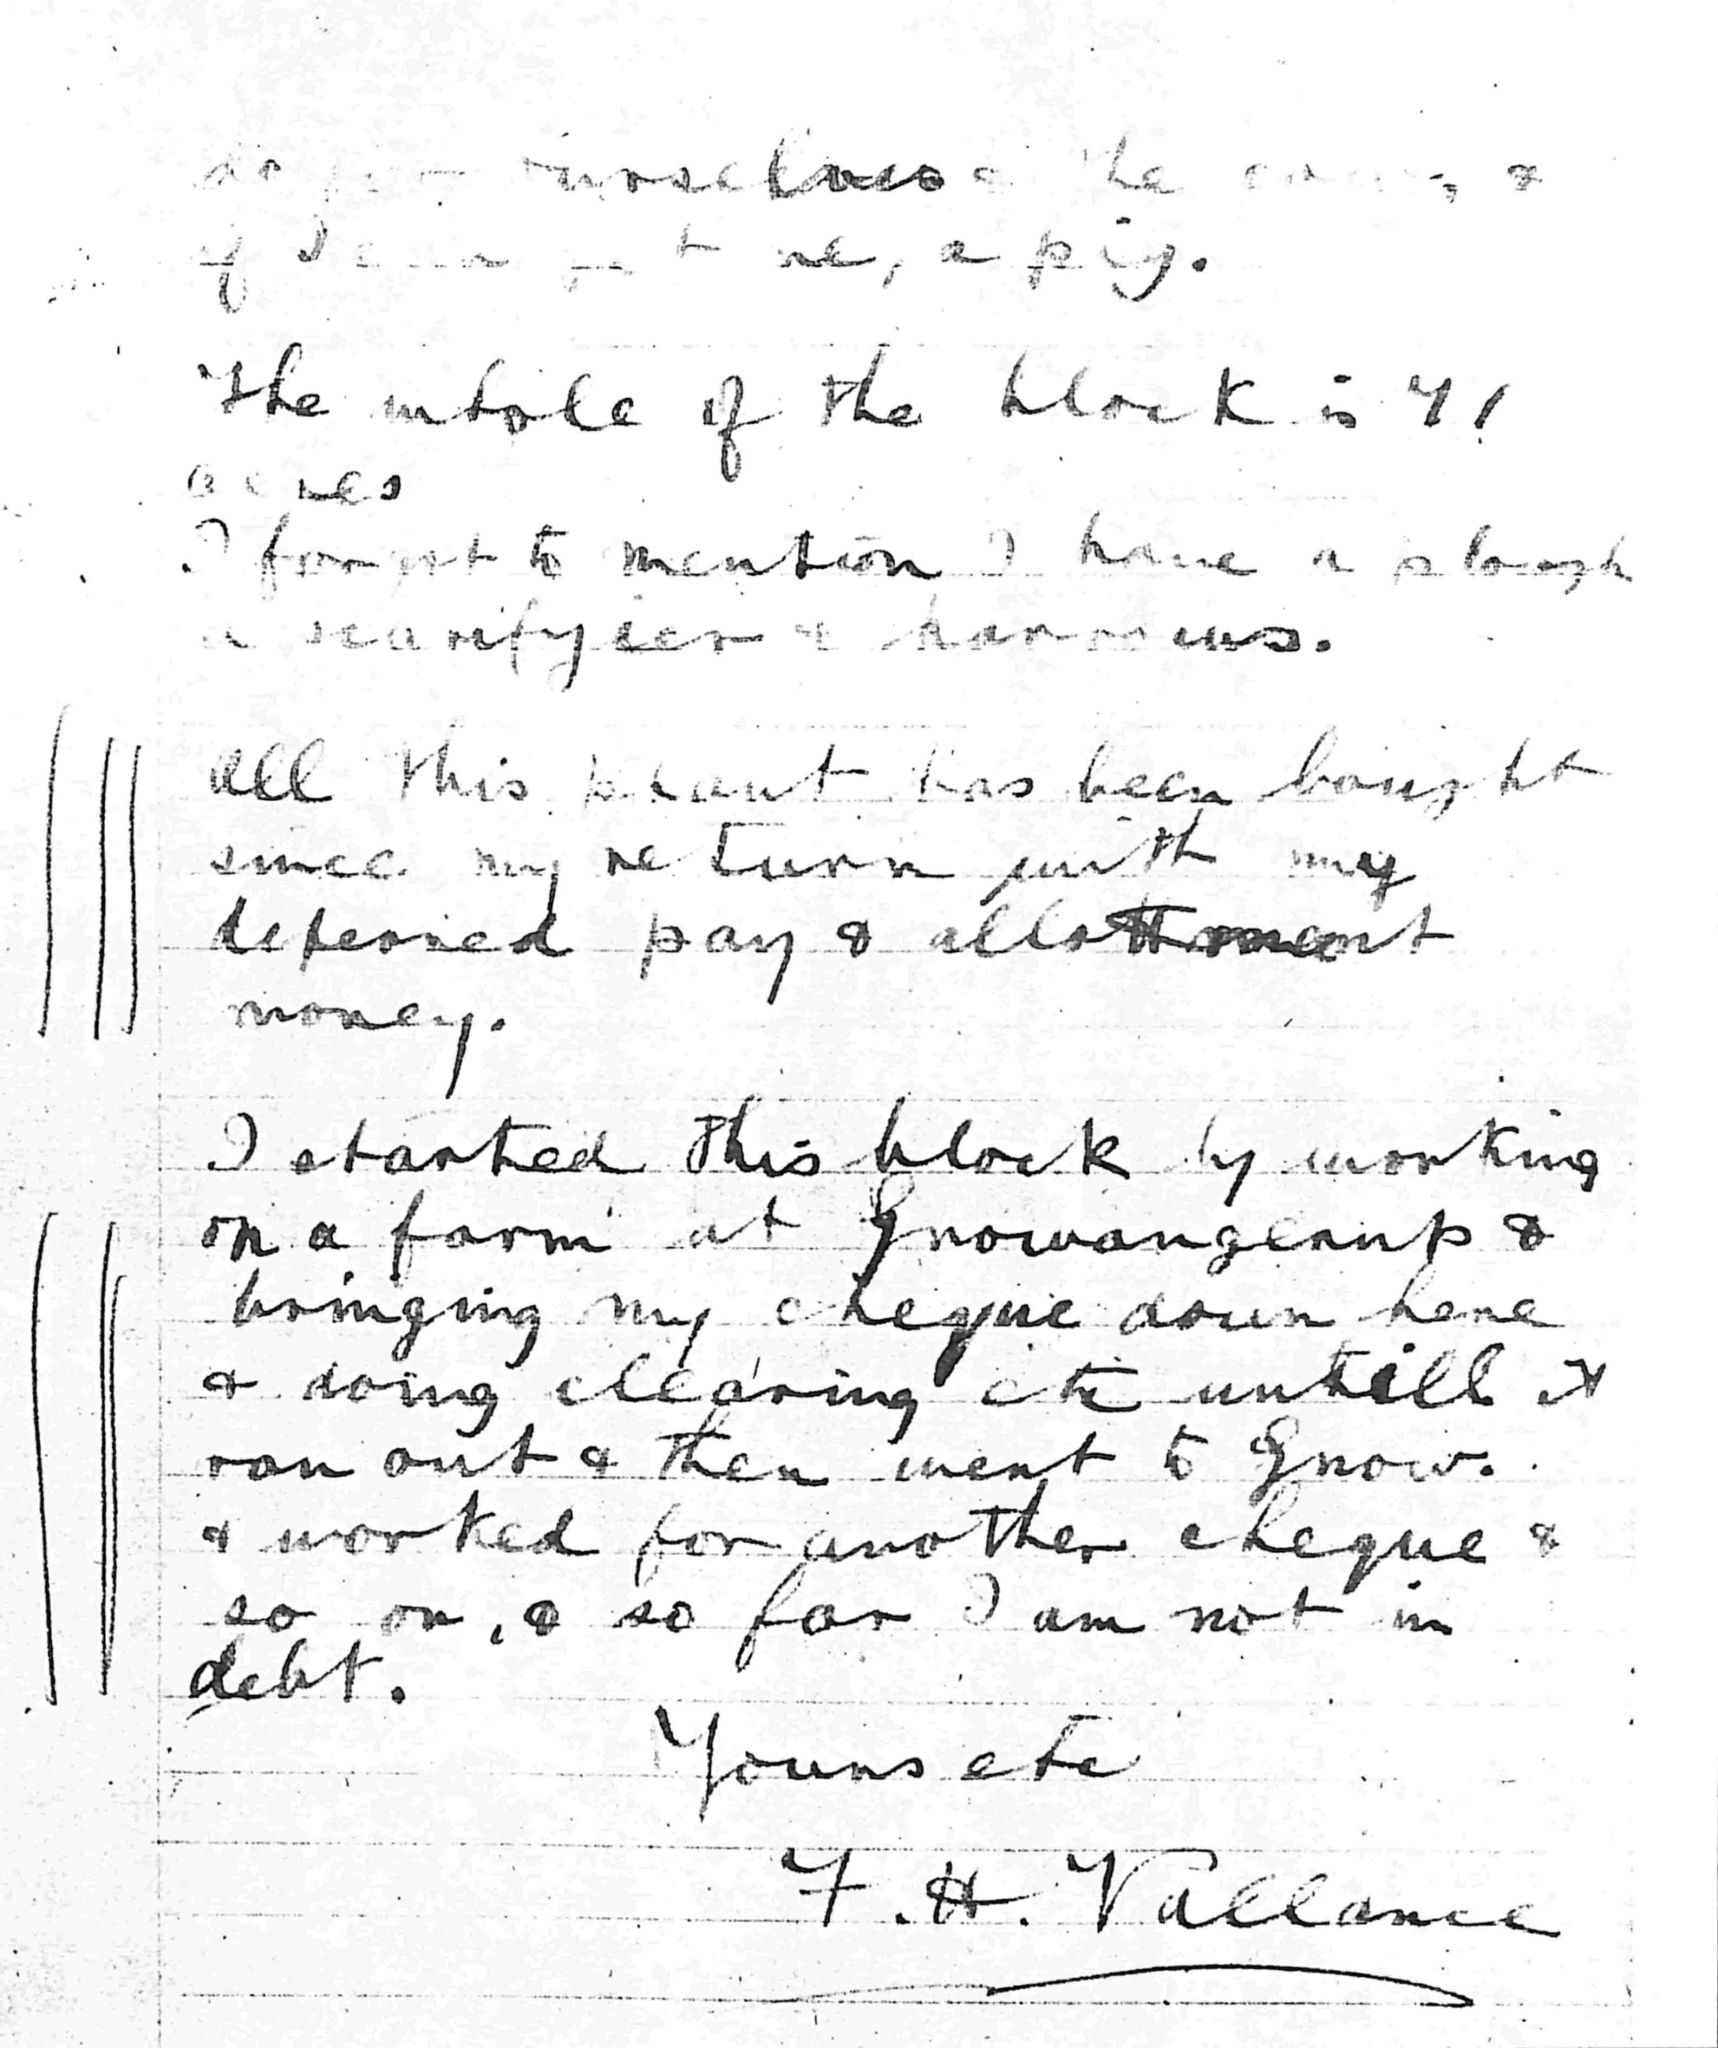 ourselves & the &
if I can get one, a pig.
The whole of the block is 41
acres
I forgot to mention I have a plough
a scarifyier & harrows.
All this plant has been bought
since my return with my
deferred pay & allottment
money.
I started this block by working
on a farm at Gnowangerup &
bringing my cheque down here
& doing clearing etc untill it
ran out & then went to Gnow.
& worked for another cheque &
so on, & so far I am not in
debt.
Yours etc
F. H. Vallance